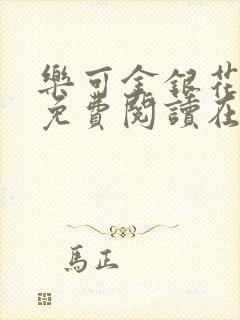 樂可金銀花
免費閱讀在
馬正